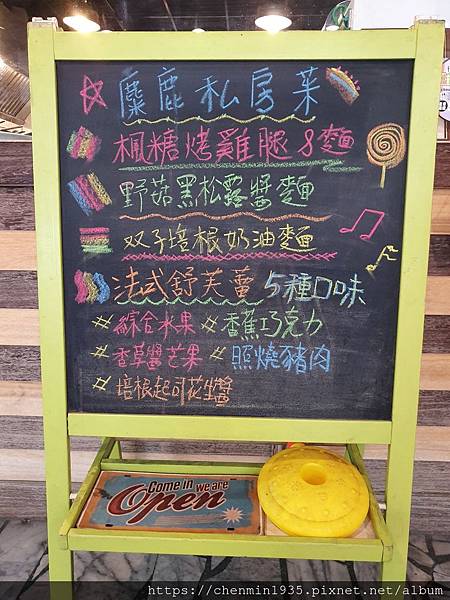 麋鹿私房菜
楓糖烤雞腿&麵
野菇黑松露醬麵
双子培根奶油麵
法式舒芙蕾 5種口味
#綜合水果 #香蕉巧克力
#香草醬芒果 #照燒豬肉
#培根起司花生醬
Come in we are
Open
https://chenmin1935.pixnet.net/album